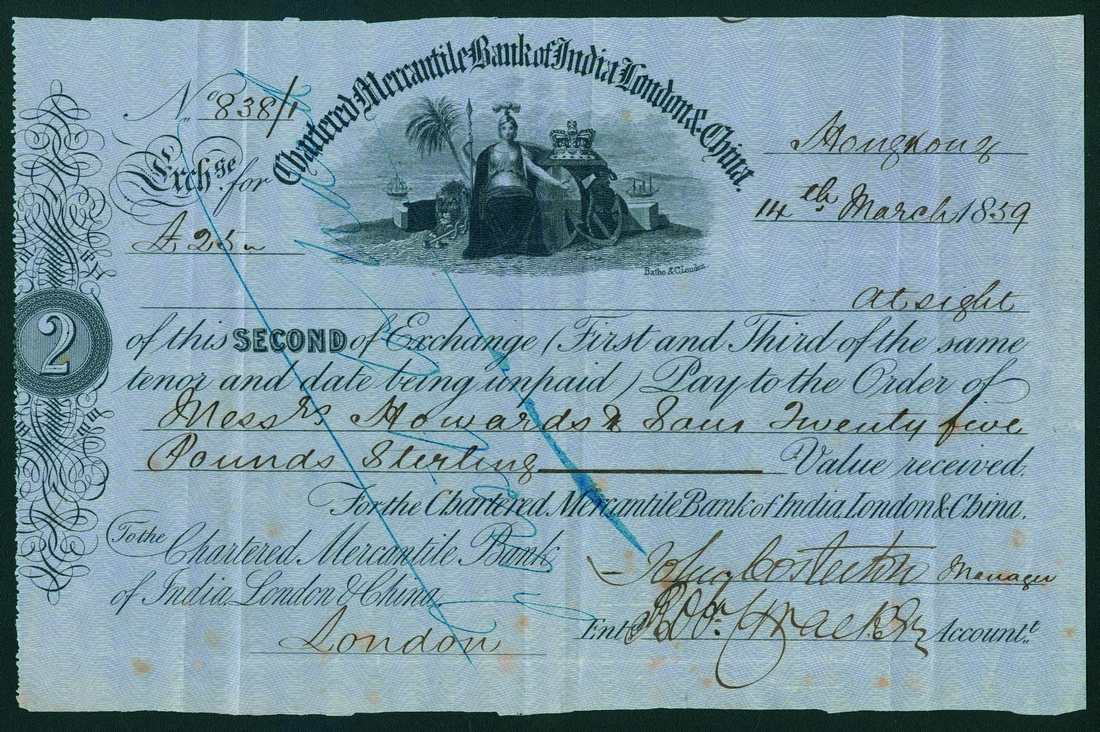 Chartered Mercantile Bank of India London & China.
No. 838/1
Hongkong
Exchge for
14th March 1859
£ 25
Batho & Co London.
At sight
2
of this SECOND of Exchange (First and Third of the same
tenor and date being unpaid) Pay to the Order of
Messrs Howards & Sons Twenty five
Pounds Sterling Value received.
For the Chartered Mercantile Bank of India, London & China.
To the Chartered Mercantile Bank
of India, London & China,
Manager
London
Entd Accountt.